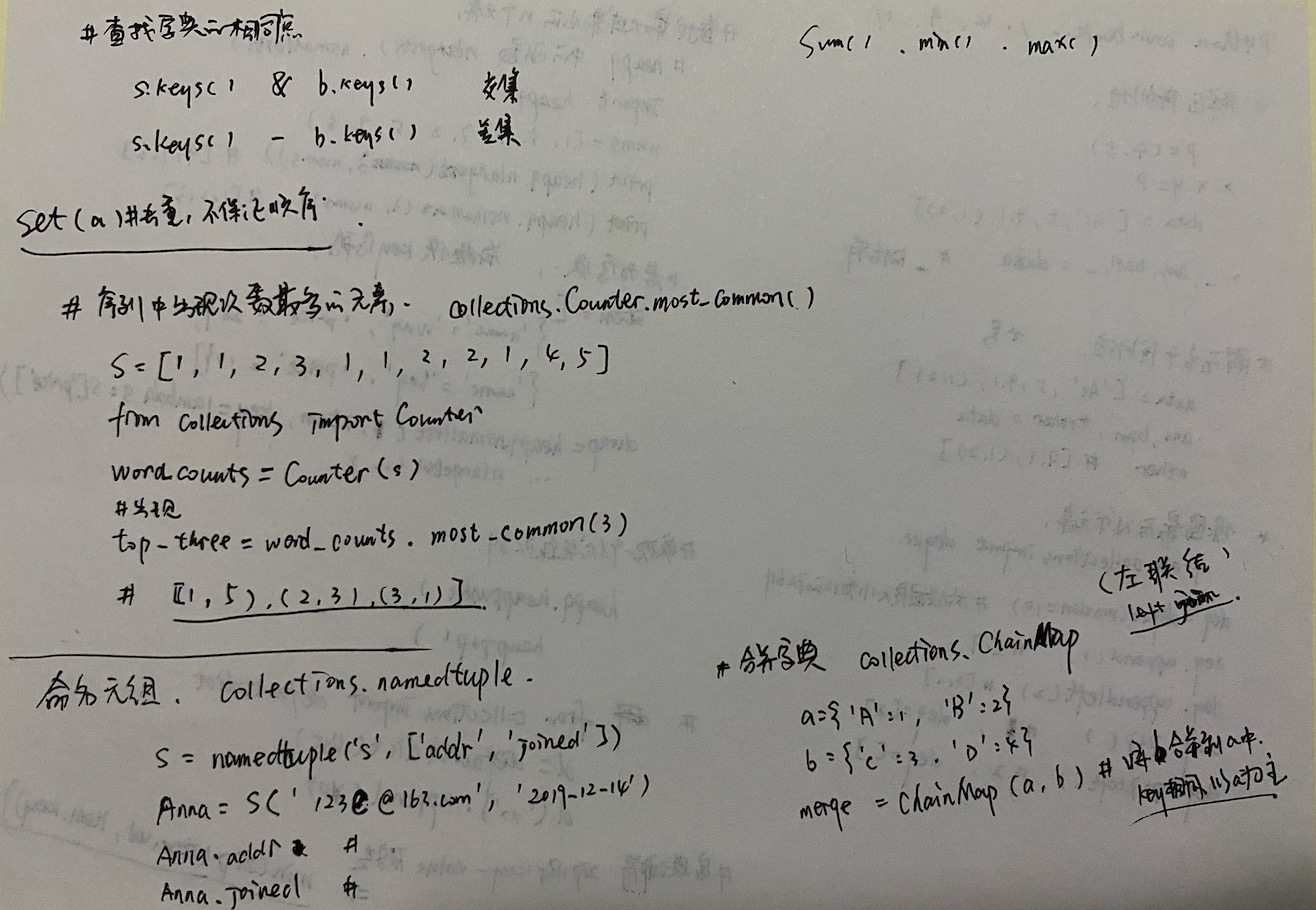 # 查找字典的相同点
s.keys() & b.keys() 交集
s.keys() - b.keys() 差集
sum() . min() . max()
set(a) #去重, 不保证顺序.
# 序列中出现次数最多的元素, . collections.Counter.most_common()
S = [1, 1, 2, 3, 1, 1, 2, 2, 1, 4, 5]
from collections import Counter
word counts = Counter(s)
#出现
top_three = word_counts. most_common(3)
# [(1, 5), (2, 3), (3, 1)]
命名元组. collections.namedtuple.
S = namedtuple('s', ['addr', 'joined'])
Anna = S('123@163.com', '2019-12-14')
Anna.addr #
Anna.joined #
(左联结)
left join.
# 合并字典 collections.ChainMap
a={'A':1, 'B':2}
b={'C':3, 'D':4}
merge = ChainMap(a, b) # 将b合并到a中.
key相同, 以a为主